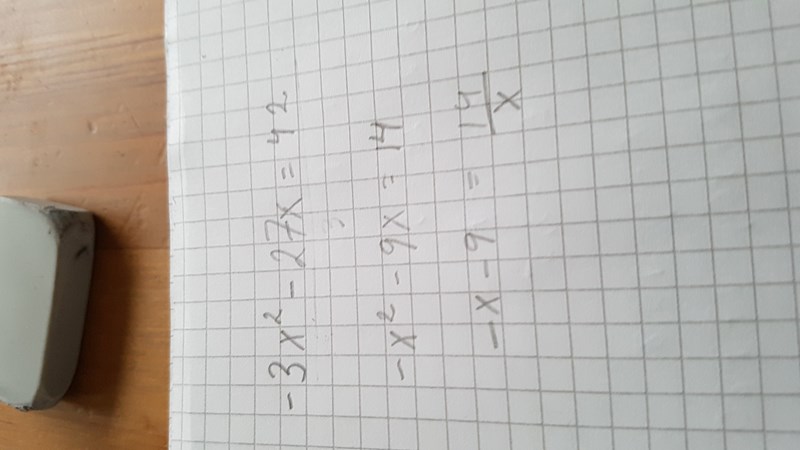 -3x² - 27x = 42
-x² - 9x = 14
-x - 9 = 14/x